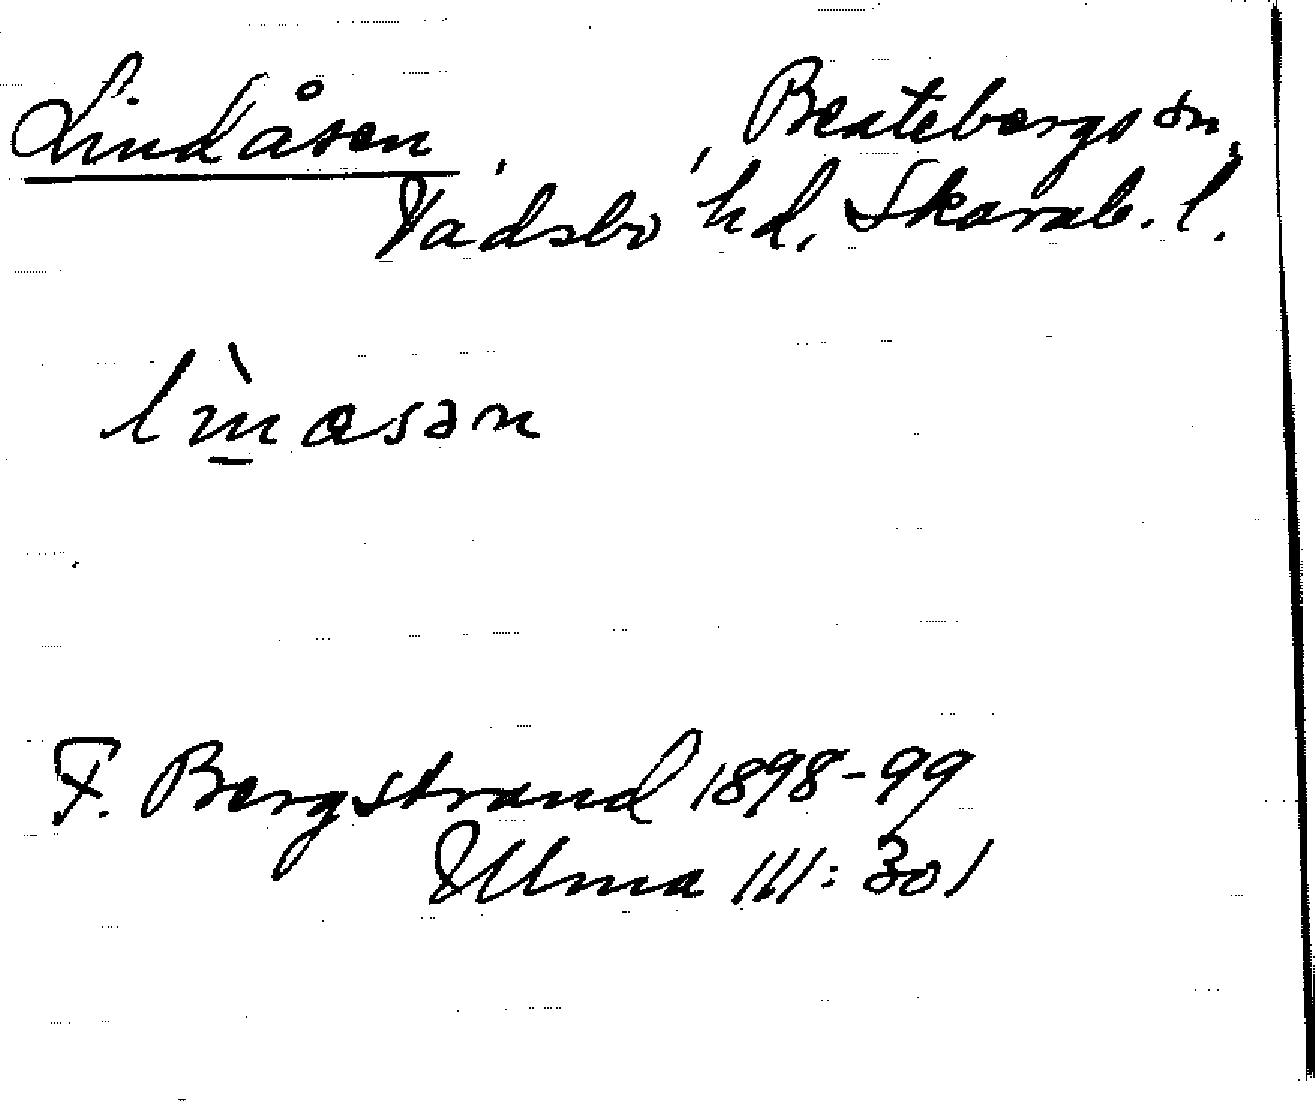 Lindåsen, , Beatebergs sn,
Vadsbo hd, Skarab. l.
F. Bergstrand 1898-99
Ulma 111:301